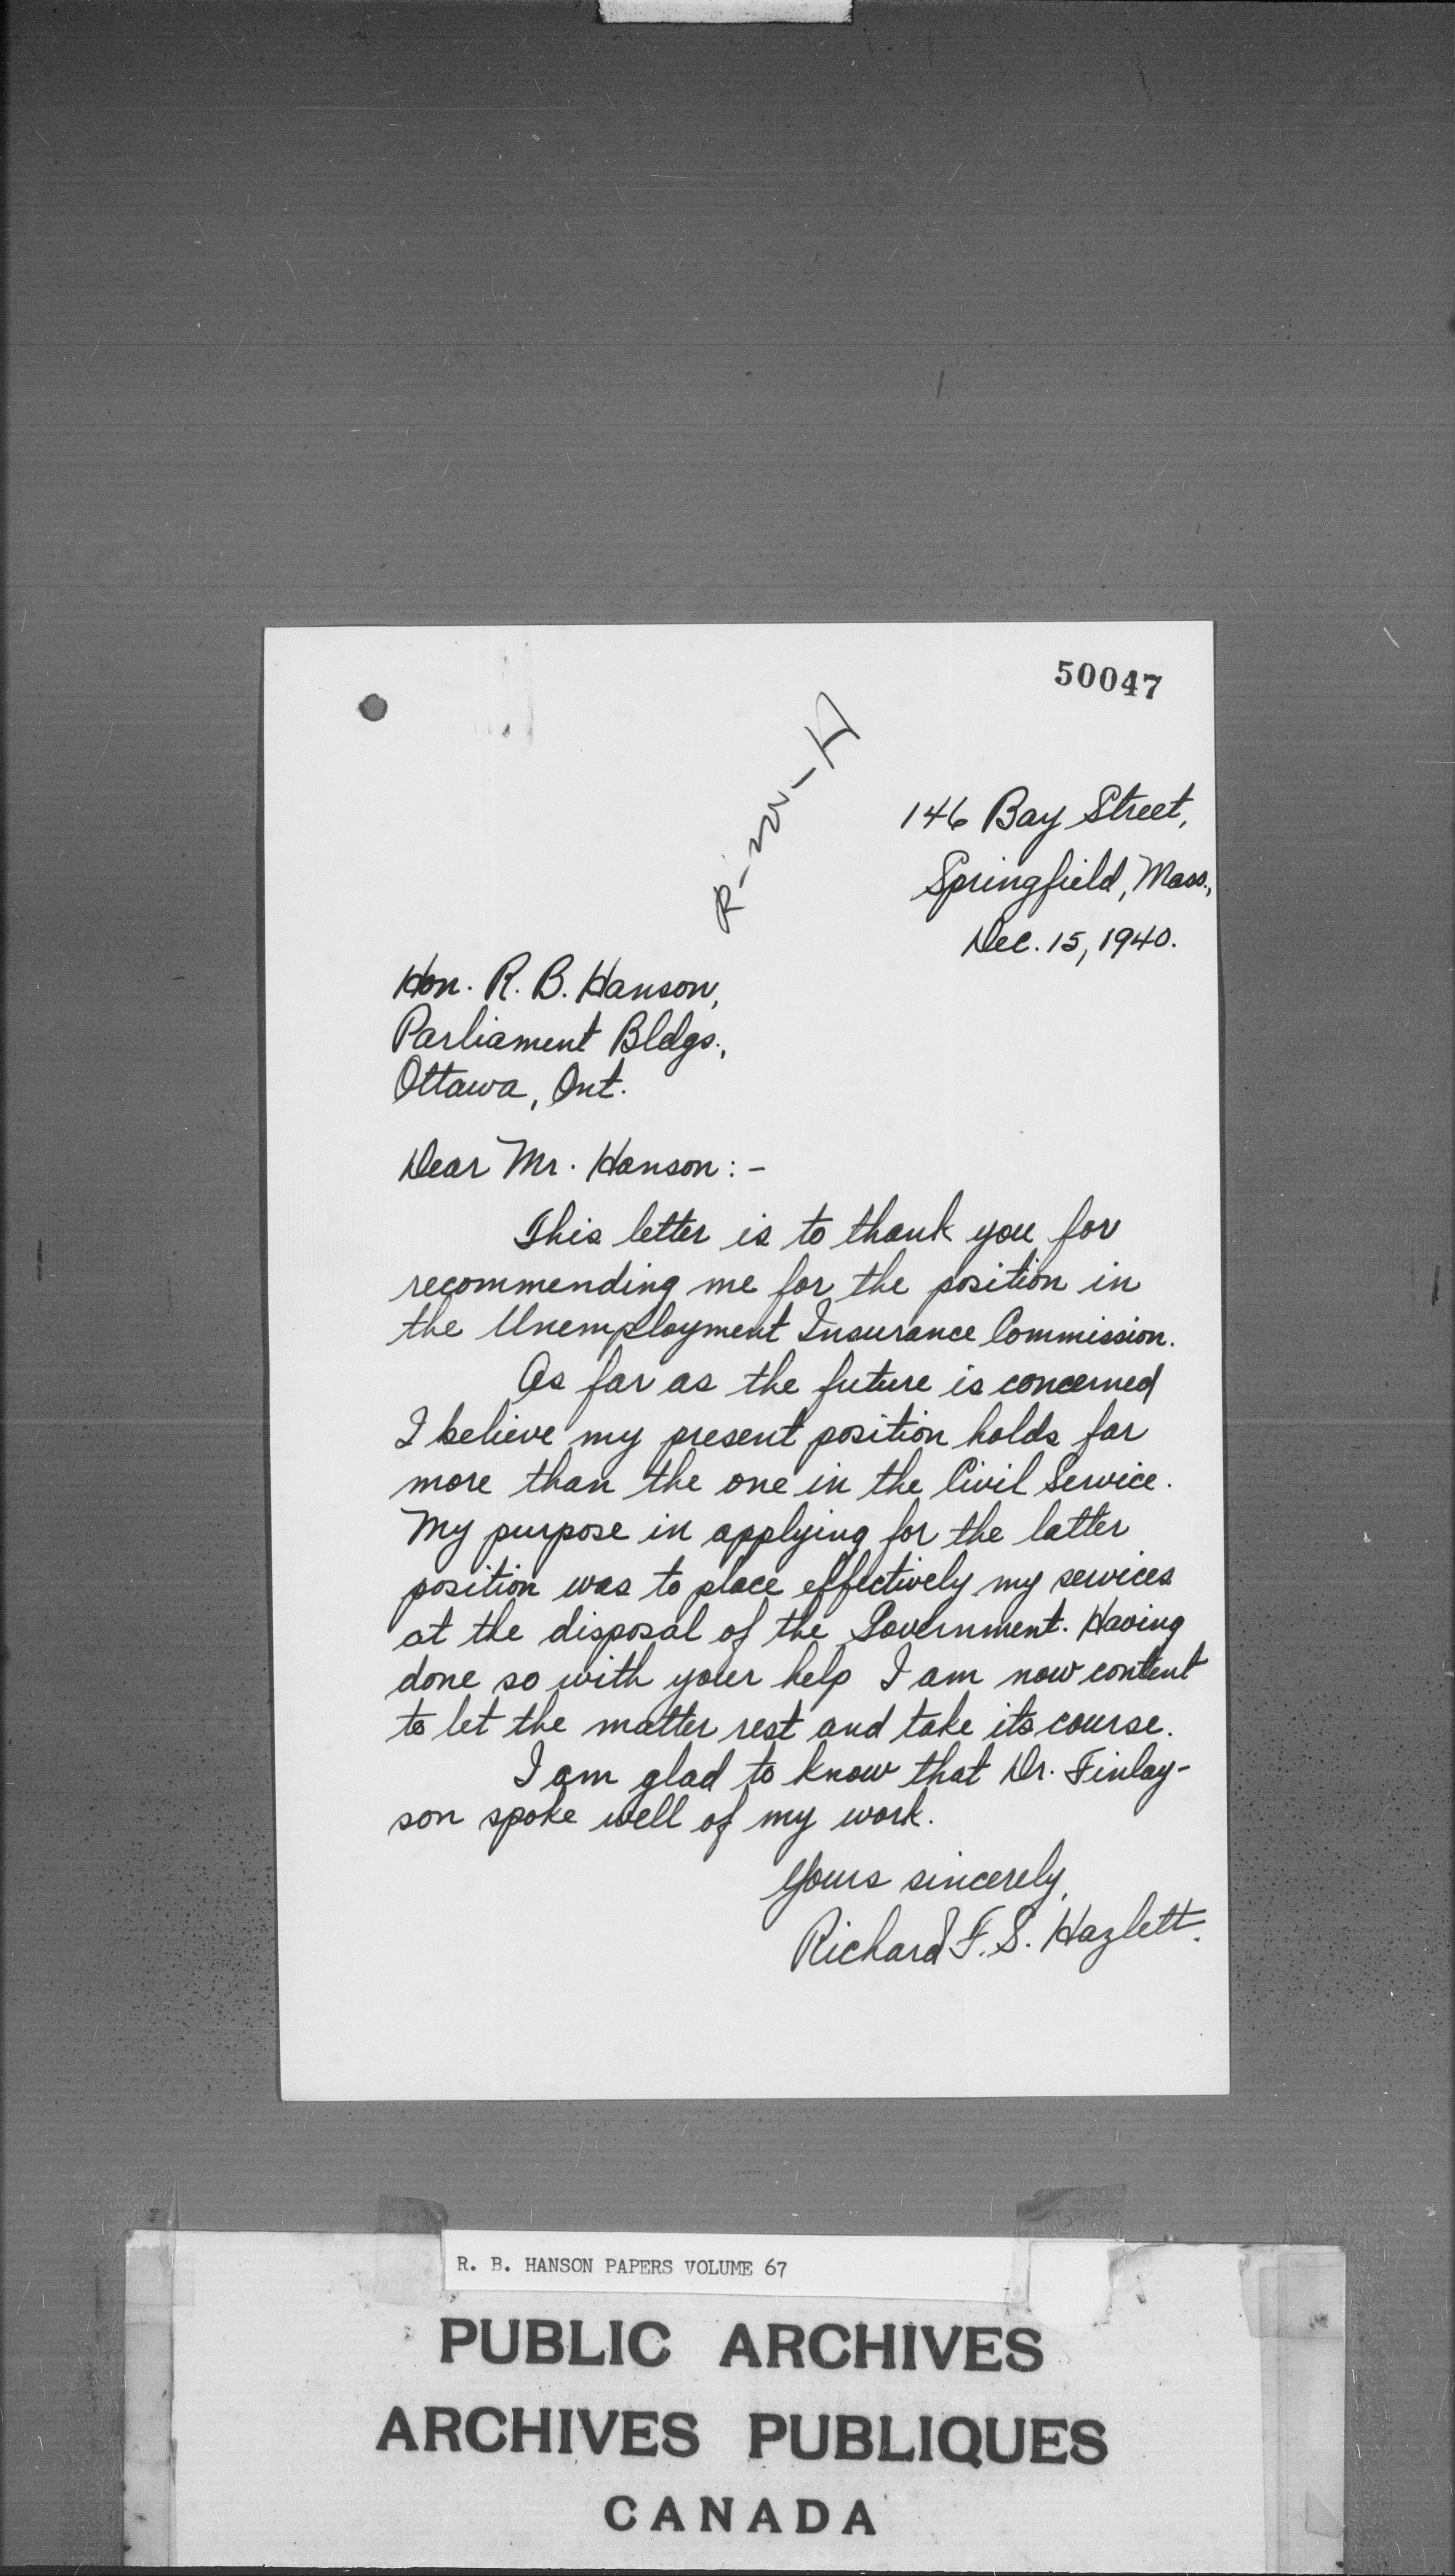 50047
146 Bay Street,
Springfield, Mass.,
Dec. 15, 1940.
Hon. R. B. Hanson,
Parliament Bldgs.,
Ottawa, Ont.
Dear Mr. Hanson: -
This letter is to thank you for
recommending me for the position in
the Unemployment Insurance Commission.
As far as the future is concerned
I believe my present position holds far
more than the one in the Civil Service.
My purpose in applying for the latter
position was to place effectively my services
at the disposal of the Government. Having
done so with your help I am now content
to let the matter rest and take its course.
I am glad to know that Dr. Finlay-
son spoke well of my work.
Yours sincerely,
Richard F. S. Hazlett.
R. B. HANSON PAPERS VOLUME 67
PUBLIC ARCHIVES
ARCHIVES PUBLIQUES
CANADA